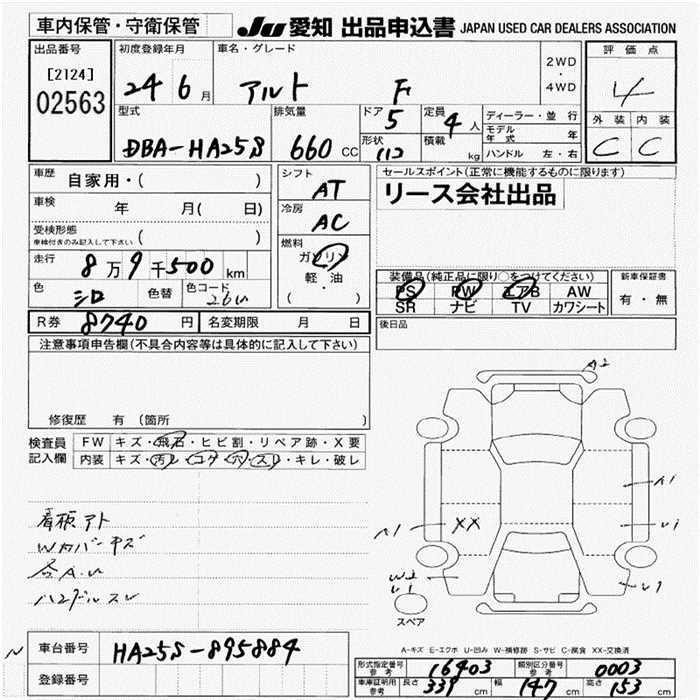 車内保管・守衛保管
JU 愛知 出品申込書 JAPAN USED CAR DEALERS ASSOCIATION
出品番号
[2124]
02563
初度登録年月
24 6 月
車名・グレード
アルト F
2WD
・
4WD
評価点
4
外装 内装
C C
型式
DBA-HA25S
排気量
660 CC
ドア
5
形状
112
定員
4 人
積載
kg
ディーラー・並行
モデル年式 年
ハンドル 左・右
車歴
自家用・( )
車検 年 月( 日)
受検形態
車検付きのみ記入して下さい ( )
走行 8万9千500 km
色 シロ 色替 色コード 26U
シフト
AT
冷房
AC
燃料
ガソリン
軽・油
( )
セールスポイント(正常に機能するものに限ります)
リース会社出品
装備品(純正品に限り○をつけてください)
PS PW エアB AW
SR ナビ TV カワシート
新車保証書
有・無
後日品
R券 8740 円 名変期限 月 日
注意事項申告欄(不具合内容等は具体的に記入して下さい)
修復歴 有(箇所 )
検査員記入欄
FW キズ・飛石・ヒビ割・リペア跡・X要
内装 キズ・汚レ・コゲ・穴・スレ・キレ・破レ
看板アト
ハンドルスレ
A2
A1
U1
A1
XX
W2
U1
U1
スペア
A-キズ E-エクボ U-凹み W-補修跡 S-サビ C-腐食 XX-交換済
N
車台番号 HA25S-895884
登録番号
形式指定番号 参考 16403 類別区分番号 参考 0003
車庫証明用 参考 長さ 339 cm 幅 147 cm 高さ 153 cm